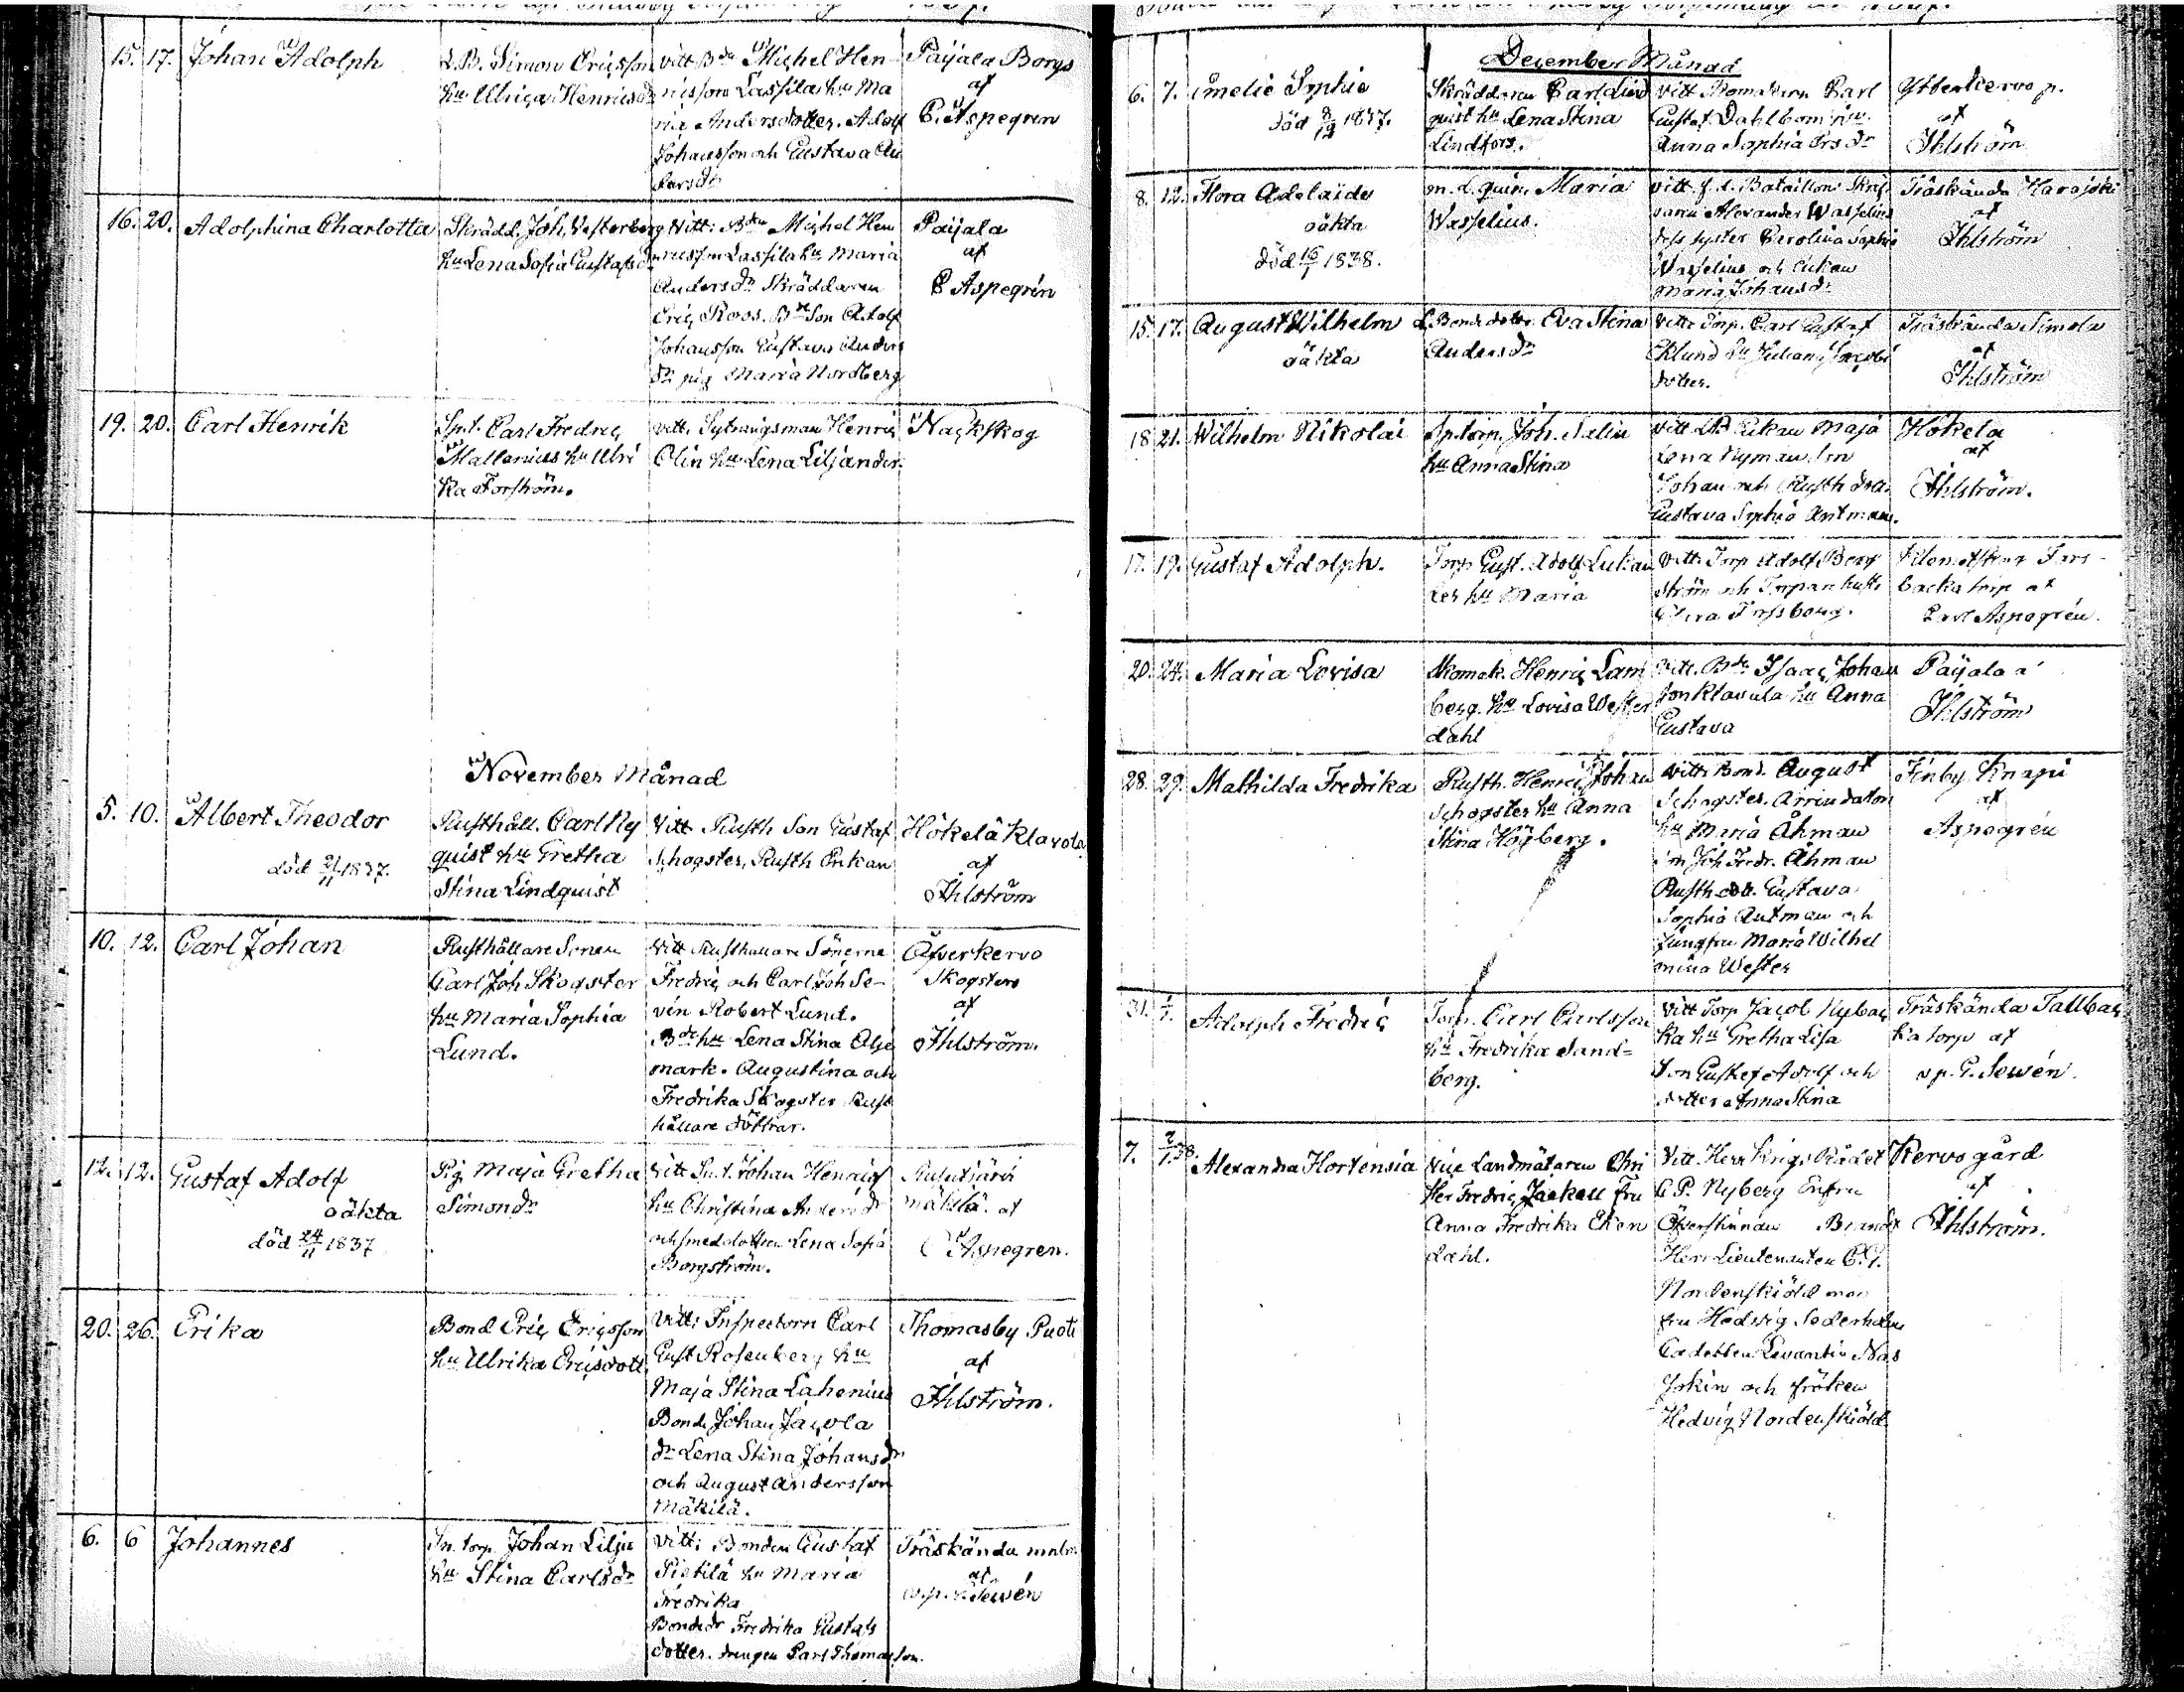 15. 17. Johan Adolph
L.B. Simon Ericsson
hu Ulrica Henricsdr
vitt. Bde Michel Hen
ricsson Lassila hu Ma
ria Andersdotter. Adolf
Johansson och Gustava An
dersdr
Paijala Borgs
af
C. Aspegren
16. 20. Adolphina Charlotta
Skrädd. Joh. Vesterberg
hu Lena Sofia Gustafsdr
Vitt: Bden Michel Hen
ricsson Lassila hu Maria
Andersdr Skräddaren
Eric Roos. Bde Son Adolf
Johansson Gustava Anders
dr pig Maria Nordberg
Paijala
af
C Aspegrén
19. 20. Carl Henrik
Carl Fredric
Mallenius hu Ulri
ka Forström.
vitt. Sytningsman Henric
Olin hu Lena Liljander.
Nackskog
November Månad
5. 10. Albert Theodor
död 21/11 1837.
Rusthåll. Carl Ny
quist hu Gretha
Stina Lindquist
Vitt Rusth Son Gustaf
Schogster, Rusth Enkan
Hökelä Klavola
af
Ihlström
10. 12. Carl Johan
Rusthållare Sonen
Carl Joh Skogster
hu Maria Sophia
Lund.
Vitt Rusthållare Sönerne
Fredric och Carl Joh Se-
vén Robert Lund.
Bde hu Lena Stina Alje
mark. Augustina och
Fredrika Skogster Rust
hållare döttrar.
Öfverkervo
Skogsters
af
Ihlström.
12. 12. Gustaf Adolf
oäkta
död 24/11 1837
Pig Maja Gretha
Simonsdr
Vitt Johan Henricss
hu Christina Andersdr
och smeddottren Lena Sofia
Borgström.
Rusutjärvi
mäkilä. af
C Aspegren.
20. 26. Erika
Bond Eric Ericsson
hu Ulrika Ericsdott
Vitt: Inspectorn Carl
Gust Rosenberg hu
Maja Stina Lahenius
Bond. Johan Jacola
dr Lena Stina Johansdr
och August Andersson
Mäkilä.
Thomasby Puoti
af
Ihlström.
6. 6 Johannes
In. torp. Johan Lilja
hu Stina Carlsdr
Vitt: Bonden Gustaf
Pietilä hu Maria
Fredrika
Bondedr Fredrika Gustafs
dotter. drengen Carl Thomasson.
Träskända
af
Sewén
December Månad
6. 7. Emelie Sophie
död 8/12 1837.
Skräddaren Carl Lind
quist hu Lena Stina
Lindfors.
Vitt Skomakarn Carl
Gustaf Dahlbom
Anna Sophia Ersdr
Ytterkervo p.
af
Ihlström
8. 12. Flora Adelaide
oäkta
död 16/1 1838.
Maria
Wasselius.
vitt. f.d. Bataillons Skrif
varen Alexander Wasselius
dess syster Carolina Sophie
Wasselius och Enkan
Maria Johansdr
Träskända Harajoki
af
Ihlström
15. 17. August Wilhelm
oäkta
L. Bonde dotter Eva Stina
Andersdr
Vitt: Torp. Carl Gustaf
Eklund hu Juliana Jacobs
dotter.
Träskända Simola
af
Ihlström
18 21. Wilhelm Nikolai
Sp.torp. Joh. Salin
hu Anna Stina
Vitt LB Enkan Maja
Lena Nyman, son
Johan och Rusth dr
Gustava Sophia Antman.
Hökela
af
Ihlström.
17. 19. Gustaf Adolph.
Torp Gust. Adolf Lukan
der hu Maria
Vitt: Torp Adolf Berg
ström och Torpare
Forssberg.
backa torp af
Carl Aspegrén.
20. 24. Maria Lovisa
Skomak. Henric Lam
berg. hu Lovisa Wester
dahl
Vitt. Bde Isaac Johans
son Klavula hu Anna
Gustava
Paijala
Ihlström
28. 29. Mathilda Fredrika
Rusth. Henric Johan
Schogster hu Anna
Stina Högberg.
Vitt: Bond. August
Schogster. Arrendatorn
hu Maria Åhman
Joh Fredr. Åhman
Rusth dott. Gustava
Sophia Antman och
Jungfru Maria Wilhel
mina Wester
Finby Knapi
af
Aspegrén
31. 1/1. Adolph Fredric
Torp. Carl Carlsson
hu Fredrika Sand=
berg.
Vitt Torp Jacob Nybac
ka hu Gretha Lisa
Son Gustaf Adolf och
dotter Anna Stina
Träskända Tallbac
ka torp af
v.p. G. Sewén.
7. 7/1 38. Alexandra Hortensia
Vice Landmätaren Chri
ster Fredric Jäckell fru
Anna Fredrika Eken
dahl.
Vitt. Herr Krigs Rådet
C P. Nyberg Enfru
Öfverstinnan Brandt
Herr Lieutenanten C.G.
Nordenskiöld
fru Hedvig Söderhelm
Cadetten Levantin Nas
jokin och fröken
Hedvig Nordenskiöld
Kervo gård
af
Ihlström.